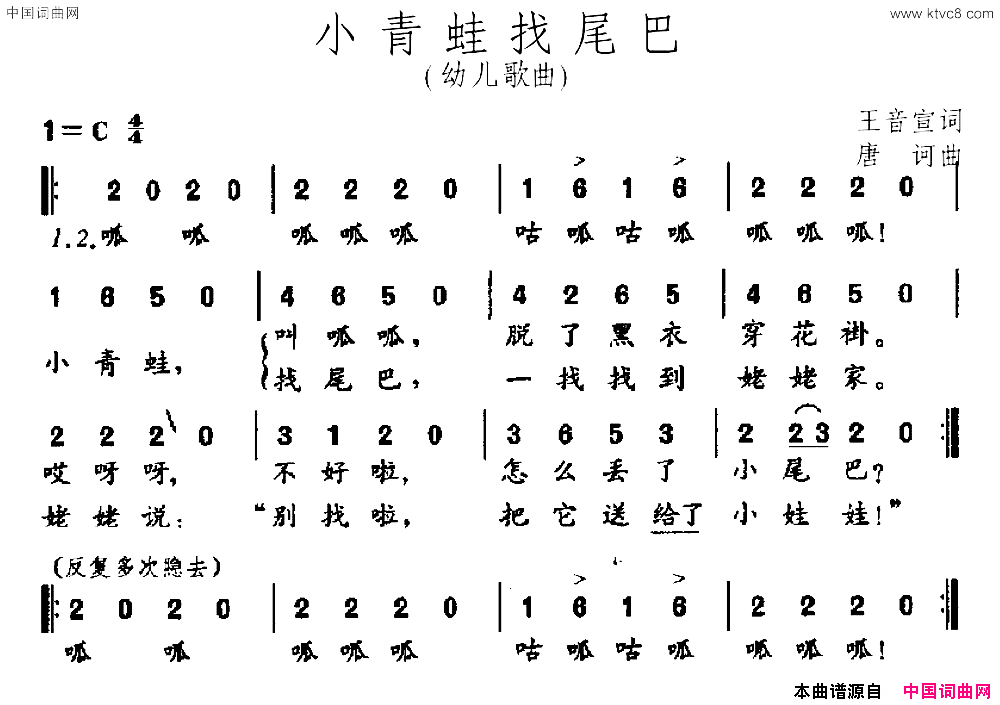 中国词曲网
www.ktvc8.com
小青蛙找尾巴
(幼儿歌曲)
1=C 4/4
王音宣词
唐 诃曲
2 0 2 0 | 2 2 2 0 | 1 6 1 6 | 2 2 2 0 |
1.2.呱 呱 呱呱呱 咕呱咕呱 呱呱呱!
1 6 5 0 | 4 6 5 0 | 4 2 6 5 | 4 6 5 0 |
小青蛙, 叫呱呱, 脱了黑衣 穿花褂。
找尾巴, 一找找到 姥姥家。
2 2 2 0 | 3 1 2 0 | 3 6 5 3 | 2 2 3 2 0 :|
哎呀呀, 不好啦, 怎么丢了 小尾巴?
姥姥说: “别找啦, 把它送给了小娃娃!”
(反复多次隐去)
2 0 2 0 | 2 2 2 0 | 1 6 1 6 | 2 2 2 0 :|
呱 呱 呱呱呱 咕呱咕呱 呱呱呱!
本曲谱源自 中国词曲网